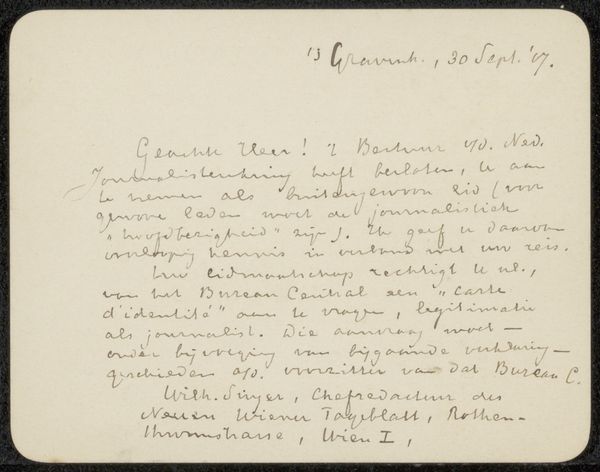 's Gravenh., 30 Sept. '07.
Geachte Heer! 't Bestuur v/d. Ned.
Journalistenkring heeft besloten, U aan
te nemen als buitengewoon lid (voor
gewone leden moet de journalistiek
"hoofdbezigheid" zijn). Ik geef U daarvan
voorloopig kennis in verband met uw reis.
Uw lidmaatschap rechtigt U nl.,
van het Bureau Central een "carte
d'identité" aan te vragen, legitimatie
als journalist. Die aanvraag moet -
onder bijvoeging van bijgaande verklaring -
geschieden a/d. voorzitter van dat Bureau C.
Wilh. Singer, Chefredacteur des
Neuen Wiener Tageblatt, Rothen-
thurmstrasse, Wien I,